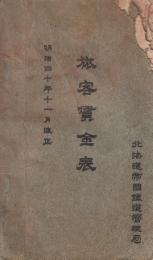 明治四十年十一月改正
旅客賃金表
北海道帝國鐵道管理局